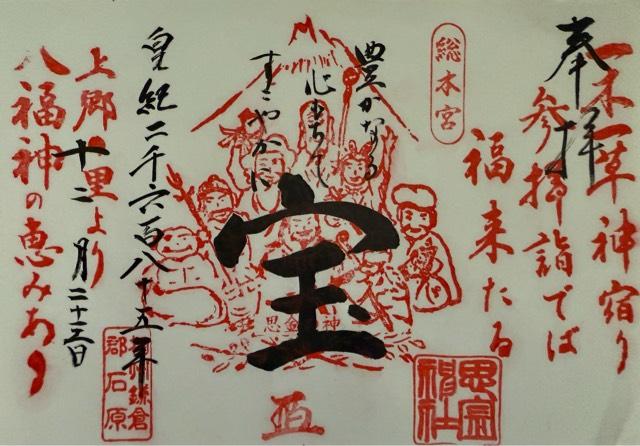 奉拝
一木一草神宿り
参拝詣でば
福来たる
総本宮
豊かなる
心もちて
すこやかに
宝
思金神
思金神社
皇紀二千六百八十五年
十二月二十三日
上郷の里より
八福神の恵みあり
鎌倉
郡石原